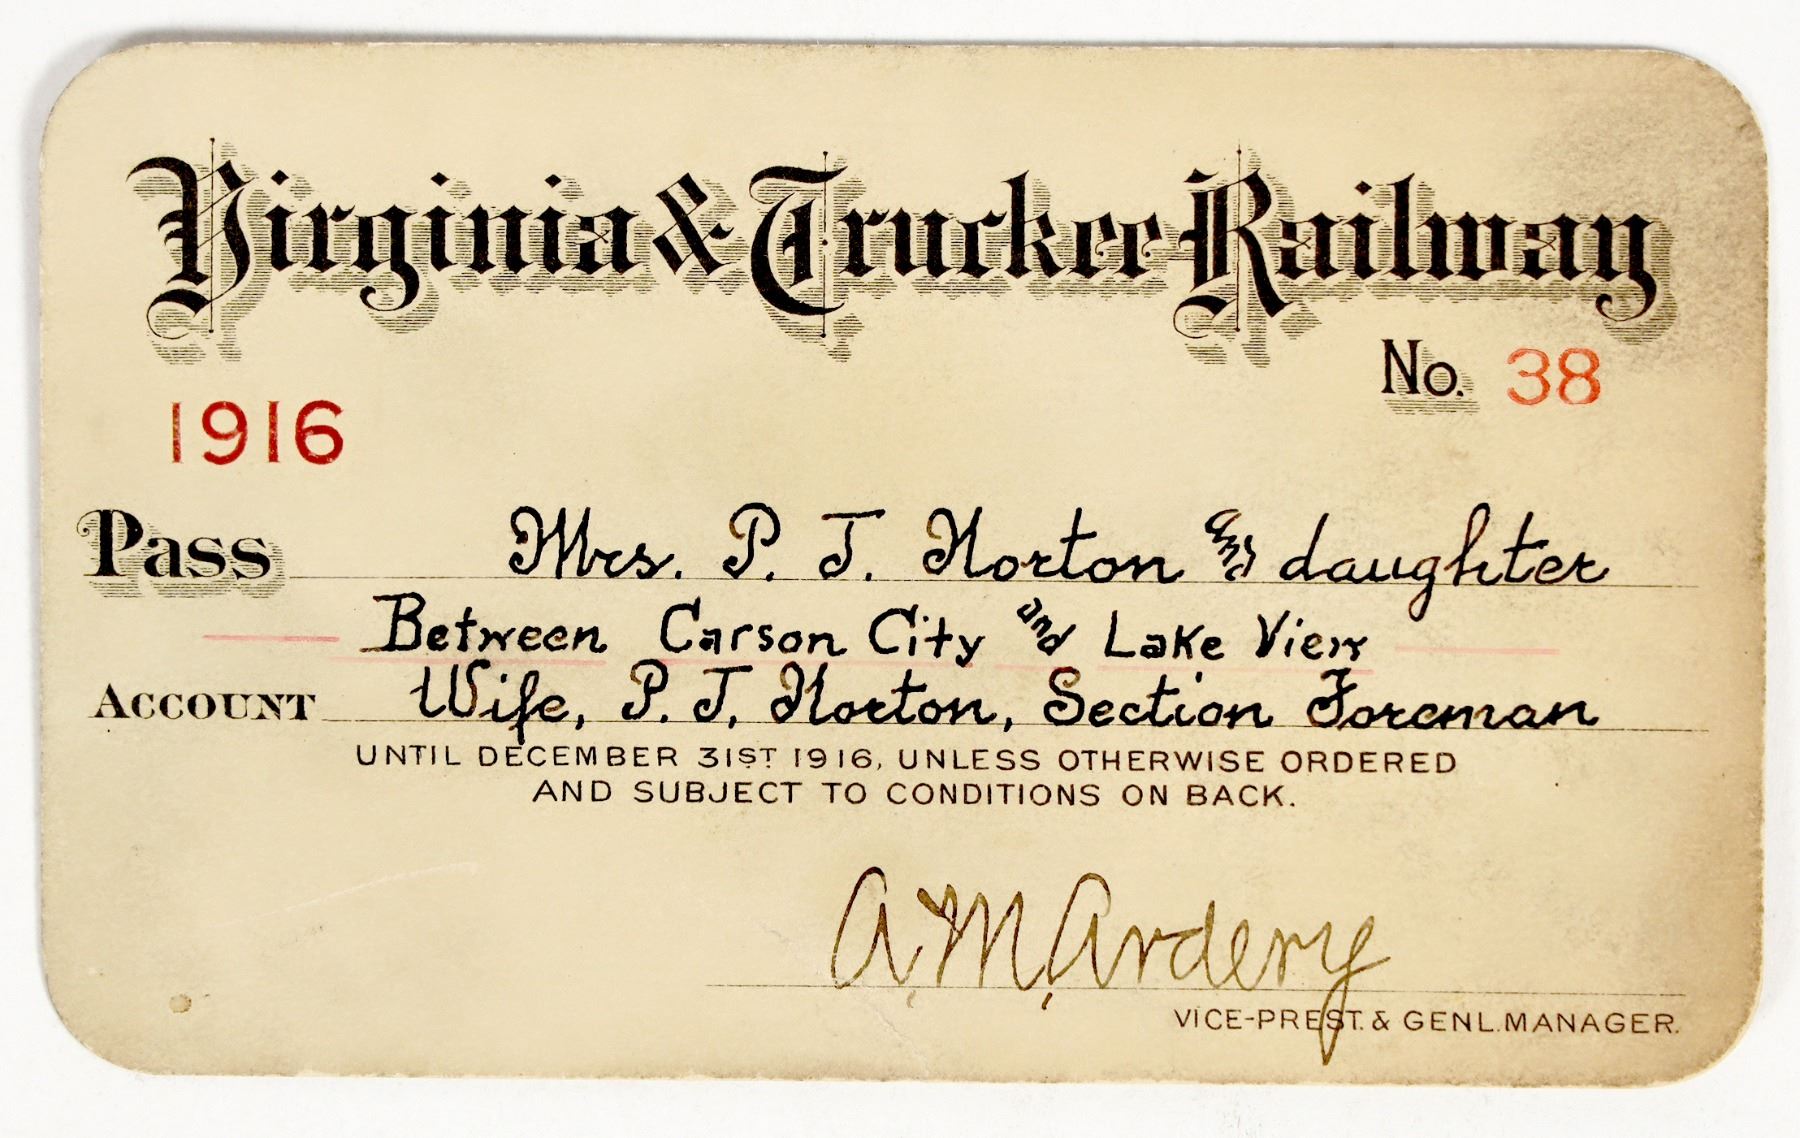 Virginia & Truckee Railway
No. 38
1916
Pass Mrs. P. T. Horton and daughter
Between Carson City and Lake View
Account Wife, P. T. Horton, Section Foreman
UNTIL DECEMBER 31ST 1916, UNLESS OTHERWISE ORDERED
AND SUBJECT TO CONDITIONS ON BACK.
A. M. Ardery
VICE-PREST. & GENL. MANAGER.